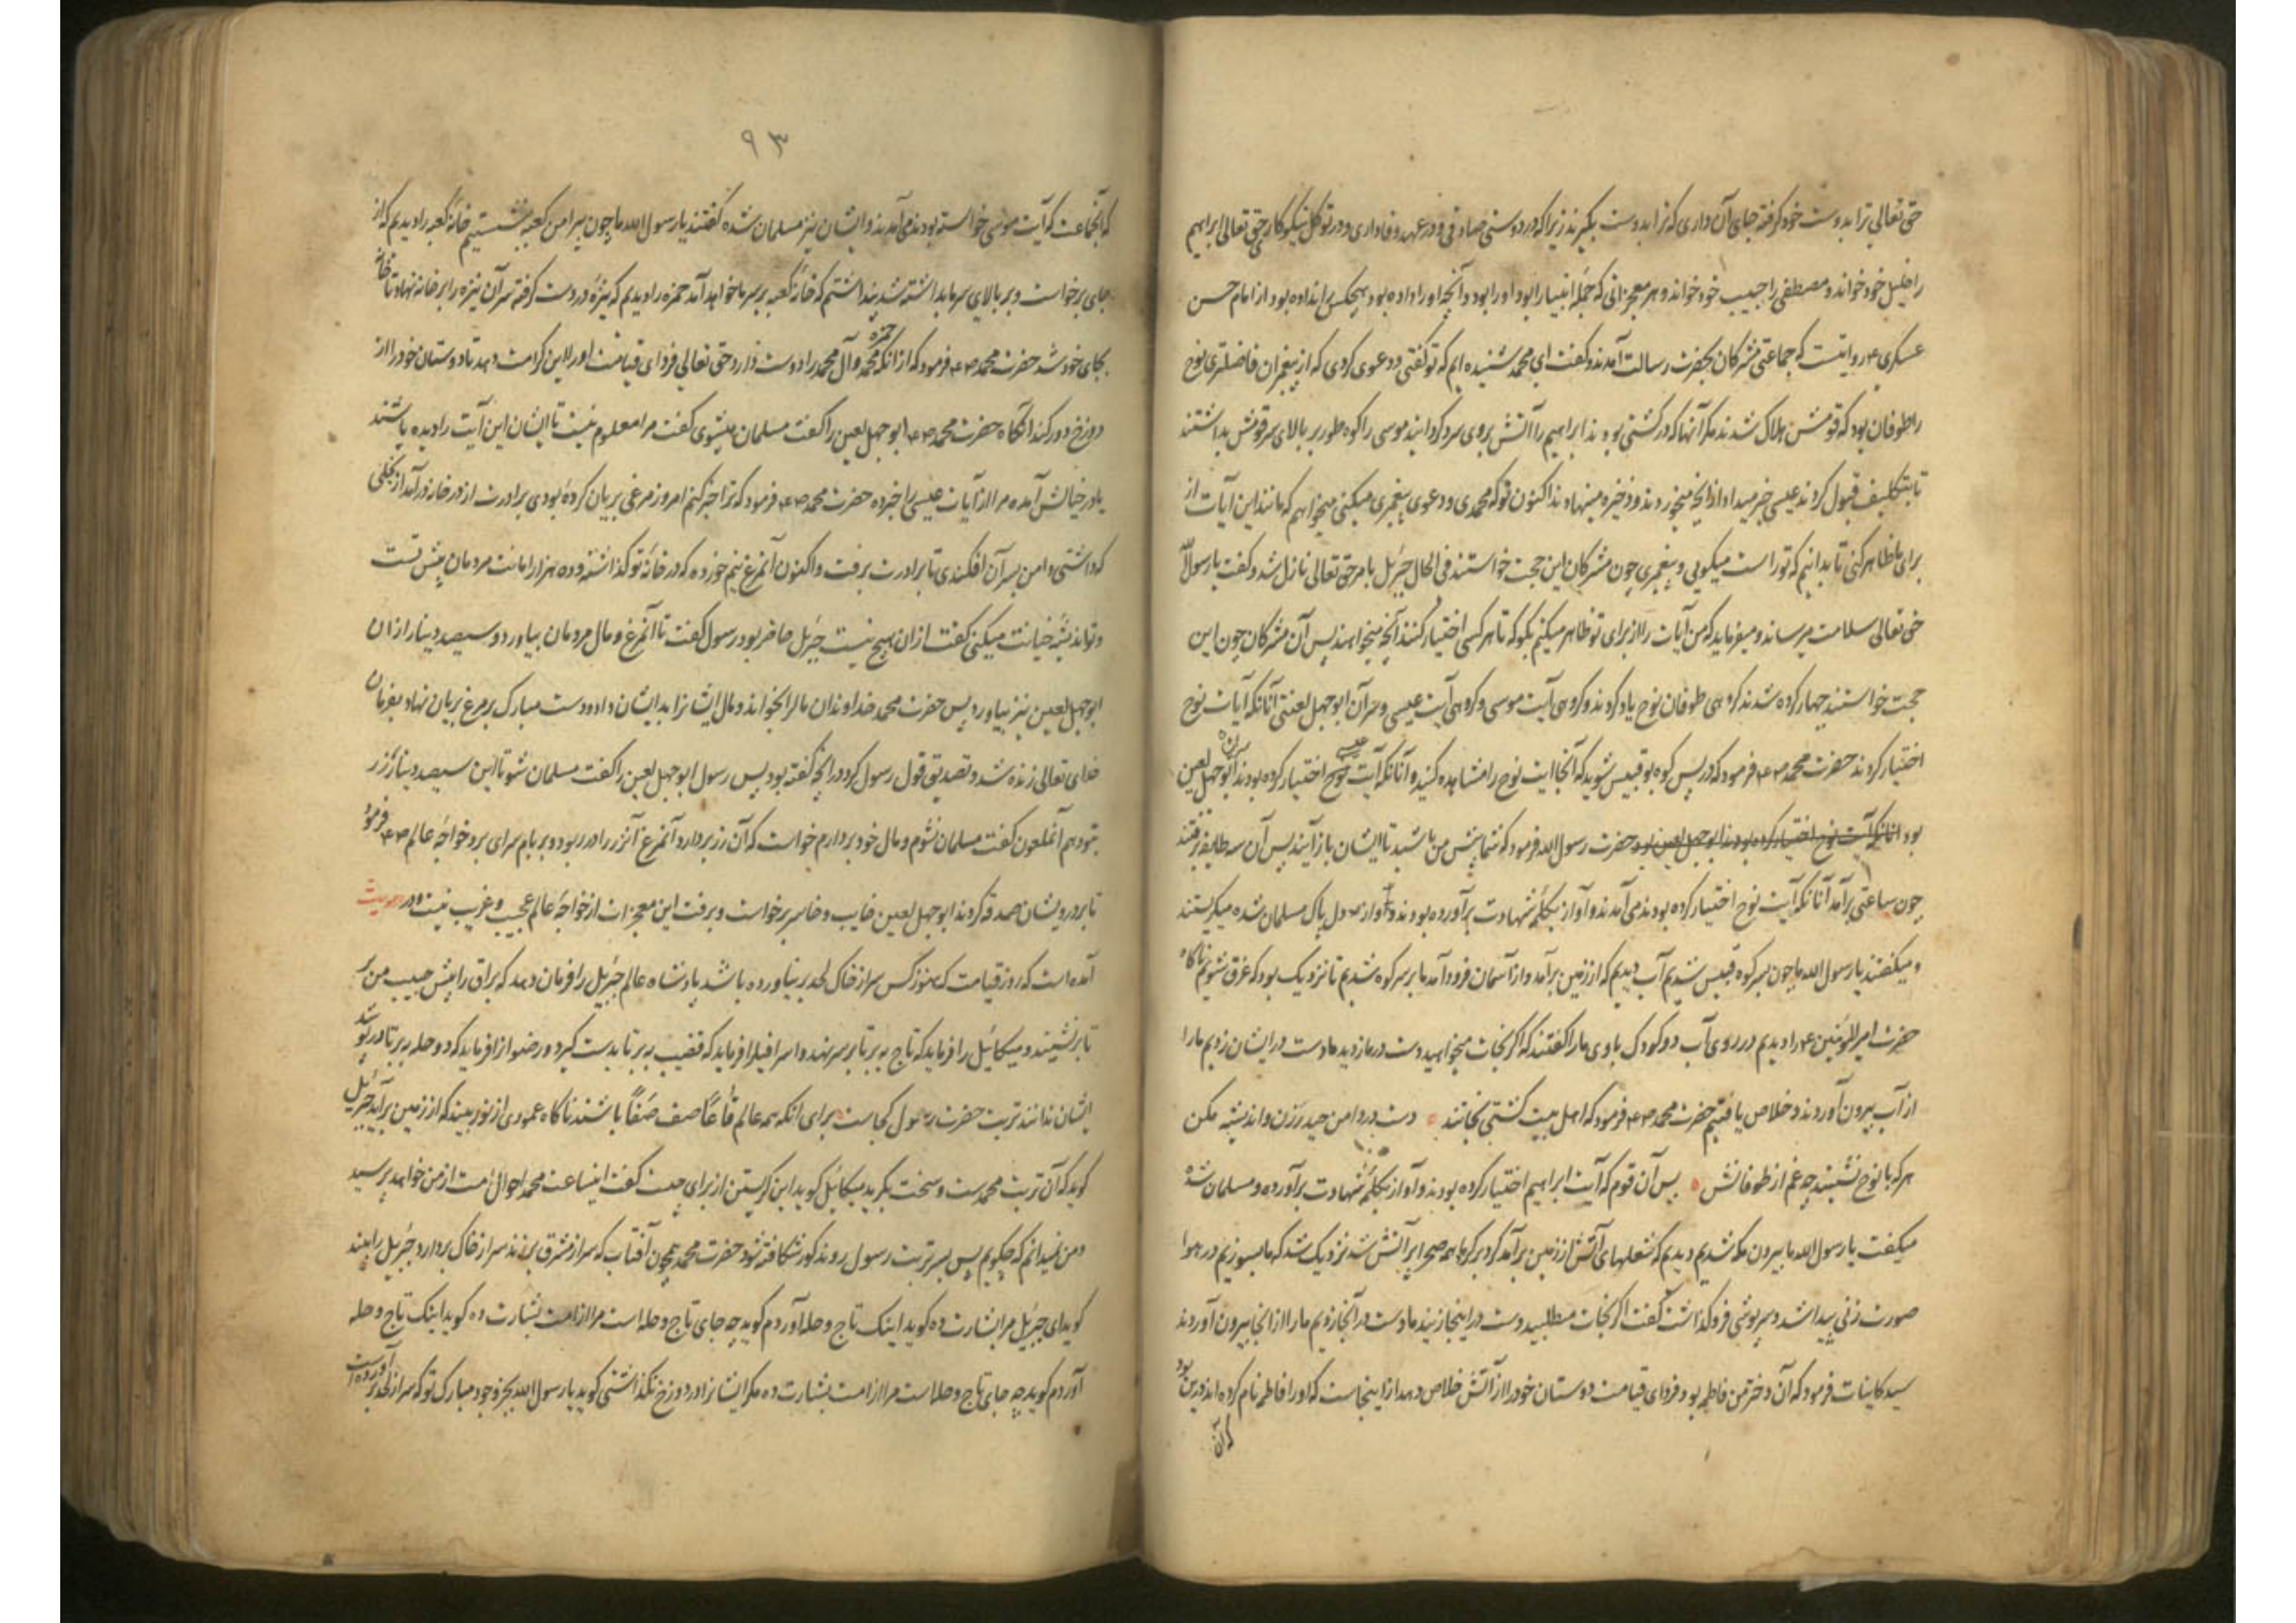 حق تعالی ترا بدوست خود گرفته جای آن داری که ترا بدوست بگیرند زیرا که در دوستی صادقی و در عهد و فاداری و در توکل نیکوکار حق تعالی ابراهیم
را خلیل خود خواند و مصطفی را حبیب خود خواند و هر معجزاتی که جملهٔ انبیا را بود او را بود و آنچه او را داده بود هیچکس را نداده بود از امام حسن
عسکری ع م روایتست که جماعتی مشرکان بحضرت رسالت آمدند و گفت ای محمد شنیده ایم که تو گفتی و دعوی کردی که از پیغمبران فاضلتری نوح
را طوفان بود که قومش هلاک شدند مگر آنها که در کشتی بودند ابراهیم را آتش بروی سرد گردانید موسی را کوه طور بر بالای سر قومش بداشتند
تا بتکلیف قبول کردند عیسی خبر میداد از آنچه میخوردند و ذخیره مینهادند اکنون تو که محمدی و دعوی پیغمبری میکنی میخواهیم که مانند این آیات از
برای ما ظاهر کنی تا بدانیم که تو راست میگویی و پیغمبری چون مشرکان این حجت خواستند فی الحال جبرئیل بامر حق تعالی نازل شد و گفت یا رسول الله
حق تعالی سلامت میرساند و میفرماید که من آیات را از برای تو ظاهر میکنم بگو که تا هر کسی اختیار کنند آنچه میخواهند پس آن مشرکان چون این
حجت خواستند چهار گروه شدند گروهی طوفان نوح یاد کردند و گروهی آیت موسی و گروهی آیت عیسی و سر آن ابو جهل لعنتی آنانکه آیات نوح
اختیار کردند حضرت محمد ص ع م فرمود که در پس کوه بو قبیس شوید که آنجا آیت نوح را مشاهده کنید و آنانکه آیت عیسی اختیار کرده بودند سر آن ابو جهل لعین
بود آنانکه آیت نوح اختیار کرده بودند ابو جهل لعین بود حضرت رسول الله فرمود که شما پیش من باشید تا ایشان باز آیند پس آن سه طایفه رفتند
چون ساعتی برآمد آنانکه آیت نوح اختیار کرده بودند می آمدند و آواز بکلمهٔ شهادت برآورده بودند و از دل پاک مسلمان شده میگریستند
و میگفتند یا رسول الله ما چون بسر کوه قبیس شدیم آب دیدیم که از زمین برآمد و از آسمان فرود آمد ما بر سر کوه شدیم تا نزدیک بود که غرق شویم ناگاه
حضرت امیر المؤمنین ع م را دیدیم در روی آب دو کودک با وی ما را گفتند که اگر نجات میخواهید دست در ما زدید ما دست در ایشان زدیم ما را
از آب بیرون آوردند و خلاص یافتیم حضرت محمد ص ع م فرمود که اهل بیت کشتی نجاتند دست در دامن حیدر زن و اندیشه مکن
هر که با نوح نشیند چه غم از طوفانش پس آن قوم که آیت ابراهیم اختیار کرده بودند و آواز بکلمهٔ شهادت برآورده و مسلمان شده
میگفت یا رسول الله ما بیرون مکه شدیم دیدیم که شعلهای آتش از زمین برآمد گرد بر گرد ما همه صحرا پر آتش شد نزدیک شد که ما بسوزیم در هوا
صورت زنی پیدا شد و سرپوشی فرو گذاشت گفت اگر نجات مطلبید دست در اینجا زنید ما دست در آنجا زدیم ما را از آنجا بیرون آوردند
سید کاینات فرمود که آن دختر من فاطمه بود فردای قیامت دوستان خود را از آتش خلاص دهد از اینجاست که او را فاطمه نام کرده اند درین بود
که آن
۹۳
که آنجماعت که آیت موسی خواسته بودند می آمدند و ایشان نیز مسلمان شده گفتند یا رسول الله ما چون پیرامن کعبه بنشستیم خانهٔ کعبه را دیدیم که از
جای برخواست و بر بالای سر ما بداشته شد پنداشتم که خانهٔ کعبه بر سر ما خواهد آمد حمزه را دیدیم که نیزه در دست گرفته سر آن نیزه را بر خانه نهاد تا خانه
بجای خود شد حضرت محمد ص ع م فرمود که از آنکه حمزه محمد و آل محمد را دوست دارد حق تعالی فردای قیامت او را این کرامت دهد تا دوستان خود را از
دوزخ دور کند آنگاه حضرت محمد ص ع م ابو جهل لعین را گفت مسلمان میشوی گفت مرا معلوم نیست تا ایشان این آیت را دیده باشند
یا در خیالش آمده مرا از آیات عیسی را خبر ده حضرت محمد ص ع م فرمود که ترا خبر کنم امروز مرغی بریان کردهٔ بودی برادرت از در خانه درآمد از بخلی
که داشتی دامن بسر آن افکندی تا برادرت برفت و اکنون آنمرغ نیم خورده که در خانهٔ تو گذاشته و ده هزار امانت مردمان پیش تست
و تو اندیشهٔ خیانت میکنی گفت از آن هیچ نیست جبرئیل حاضر بود رسول گفت تا آنمرغ و مال مردمان بیاورد و سیصد دینار از آن
ابو جهل لعین نیز بیاورد پس حضرت محمد خداوندان مال را بخواند و مال ایشانرا بدایشان داد و دست مبارک بر مرغ بریان نهاد بفرمان
خدای تعالی زنده شد و تصدیق قول رسول کرد در آنچه گفته بود پس رسول ابو جهل لعین را گفت مسلمان شو تا این سیصد دینار زر
بتو دهم آنملعون گفت مسلمان نشوم و مال خود بردارم خواست که آن زر بردارد آنمرغ آنزر را در ربود و بر بام سرای برد خواجهٔ عالم ص ع م فرمود
تا بر درویشان صدقه کردند ابو جهل لعین خایب و خاسر برخواست و برفت این معجزات از خواجهٔ عالم عجیب و غریب نیست و در حدیث
آمده است که روز قیامت که هنوز کس سر از خاک لحد بر نیاورده باشد پادشاه عالم جبرئیل را فرمان دهد که براق را پیش حبیب من بر
تا بر نشیند و میکائیل را فرماید که تاج ببر تا بر سر نهد و اسرافیل را فرماید که قضیب ببر تا بدست گیرد و رضوانرا فرماید که دو حله ببر تا در پوشد
ایشان ندانند تربت حضرت رسول کجاست برای آنکه همه عالم قاعًا صف صَفًا باشند ناگاه عمودی از نور ببیند که از زمین برآید جبرئیل
گوید که آن تربت محمدست و سخت بگرید میکائیل گوید این گریستن از برای چیست گفت اینساعت محمد احوال امت از من خواهد پرسید
و من نمیدانم که چگویم پس بسر تربت رسول روند گور شکافته شود حضرت محمد همچون آفتاب که سر از مشرق برزند سر از خاک بردارد جبرئیل را ببیند
گوید ای جبرئیل مرا بشارت ده گوید اینک تاج و حله آوردم گوید چه جای تاج و حله است مرا از امت بشارت ده گوید اینک تاج و حله
آوردم گوید چه جای تاج و حله است مرا از امت بشارت ده مگر ایشانرا در دوزخ نگذاشتی گوید یا رسول الله بجز وجود مبارک تو که سر از لحد بر آورده است